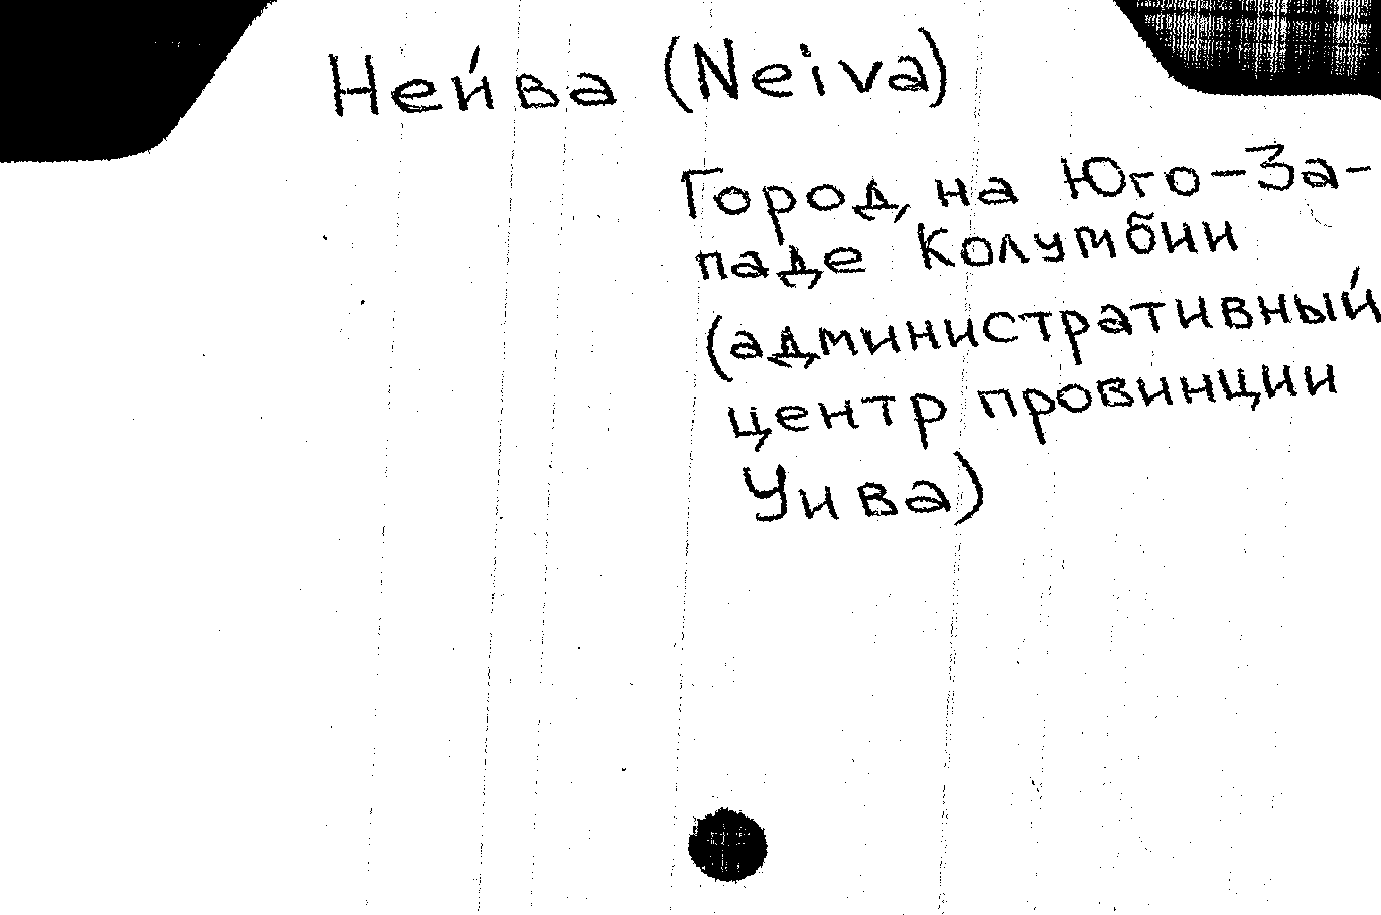 Нейва (Neiva)
Город на Юго-За-
паде Колумбии
(административный
центр провинции
Уива)